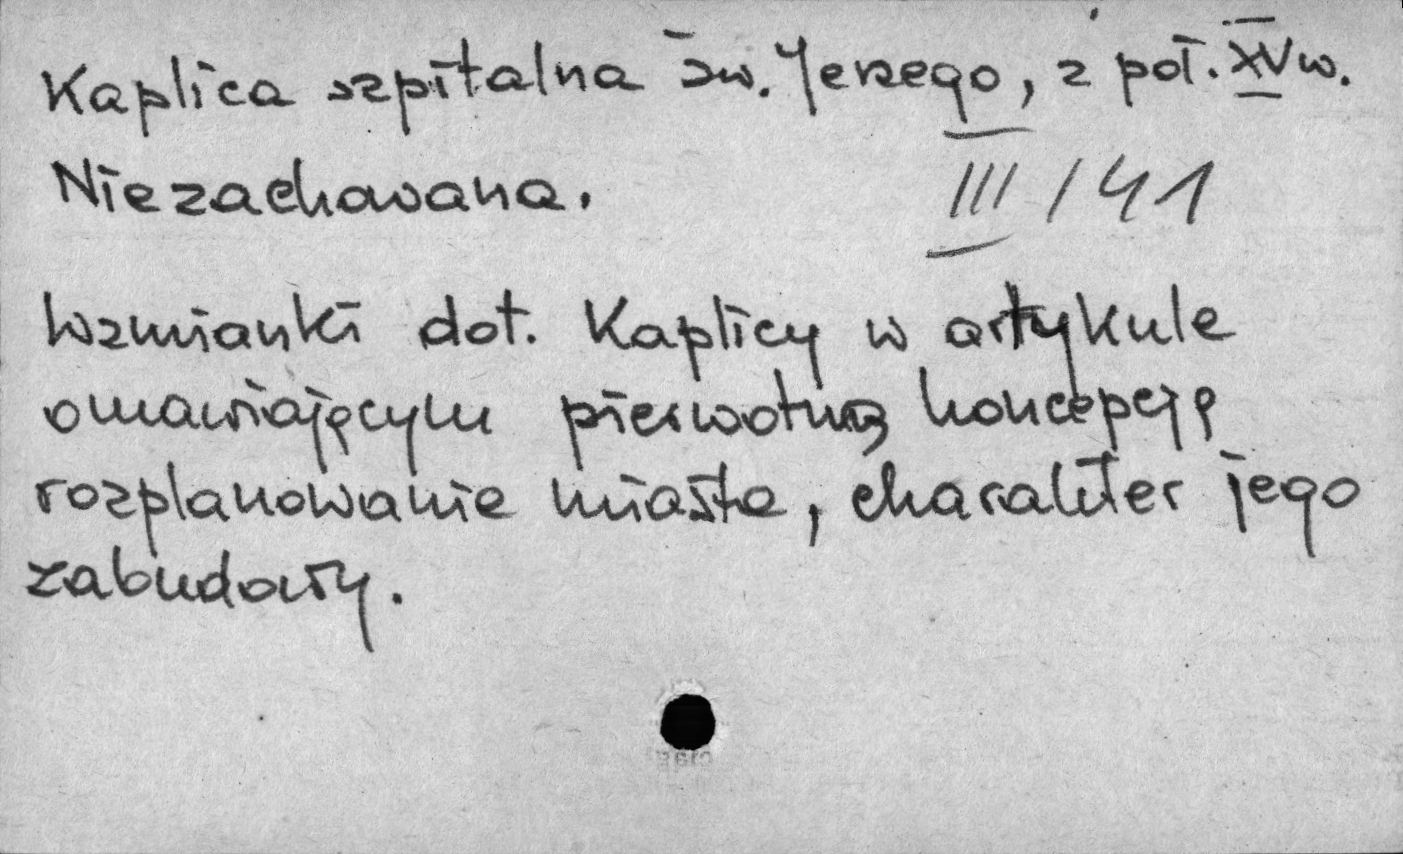 Kaplica szpitalna św. Jerzego, z poł. XV w.
Niezachowana. III/41
Wzmianki dot. Kaplicy w artykule
omawiającym pierwotną koncepcję
rozplanowanie miasta, charakter jego
zabudowy.